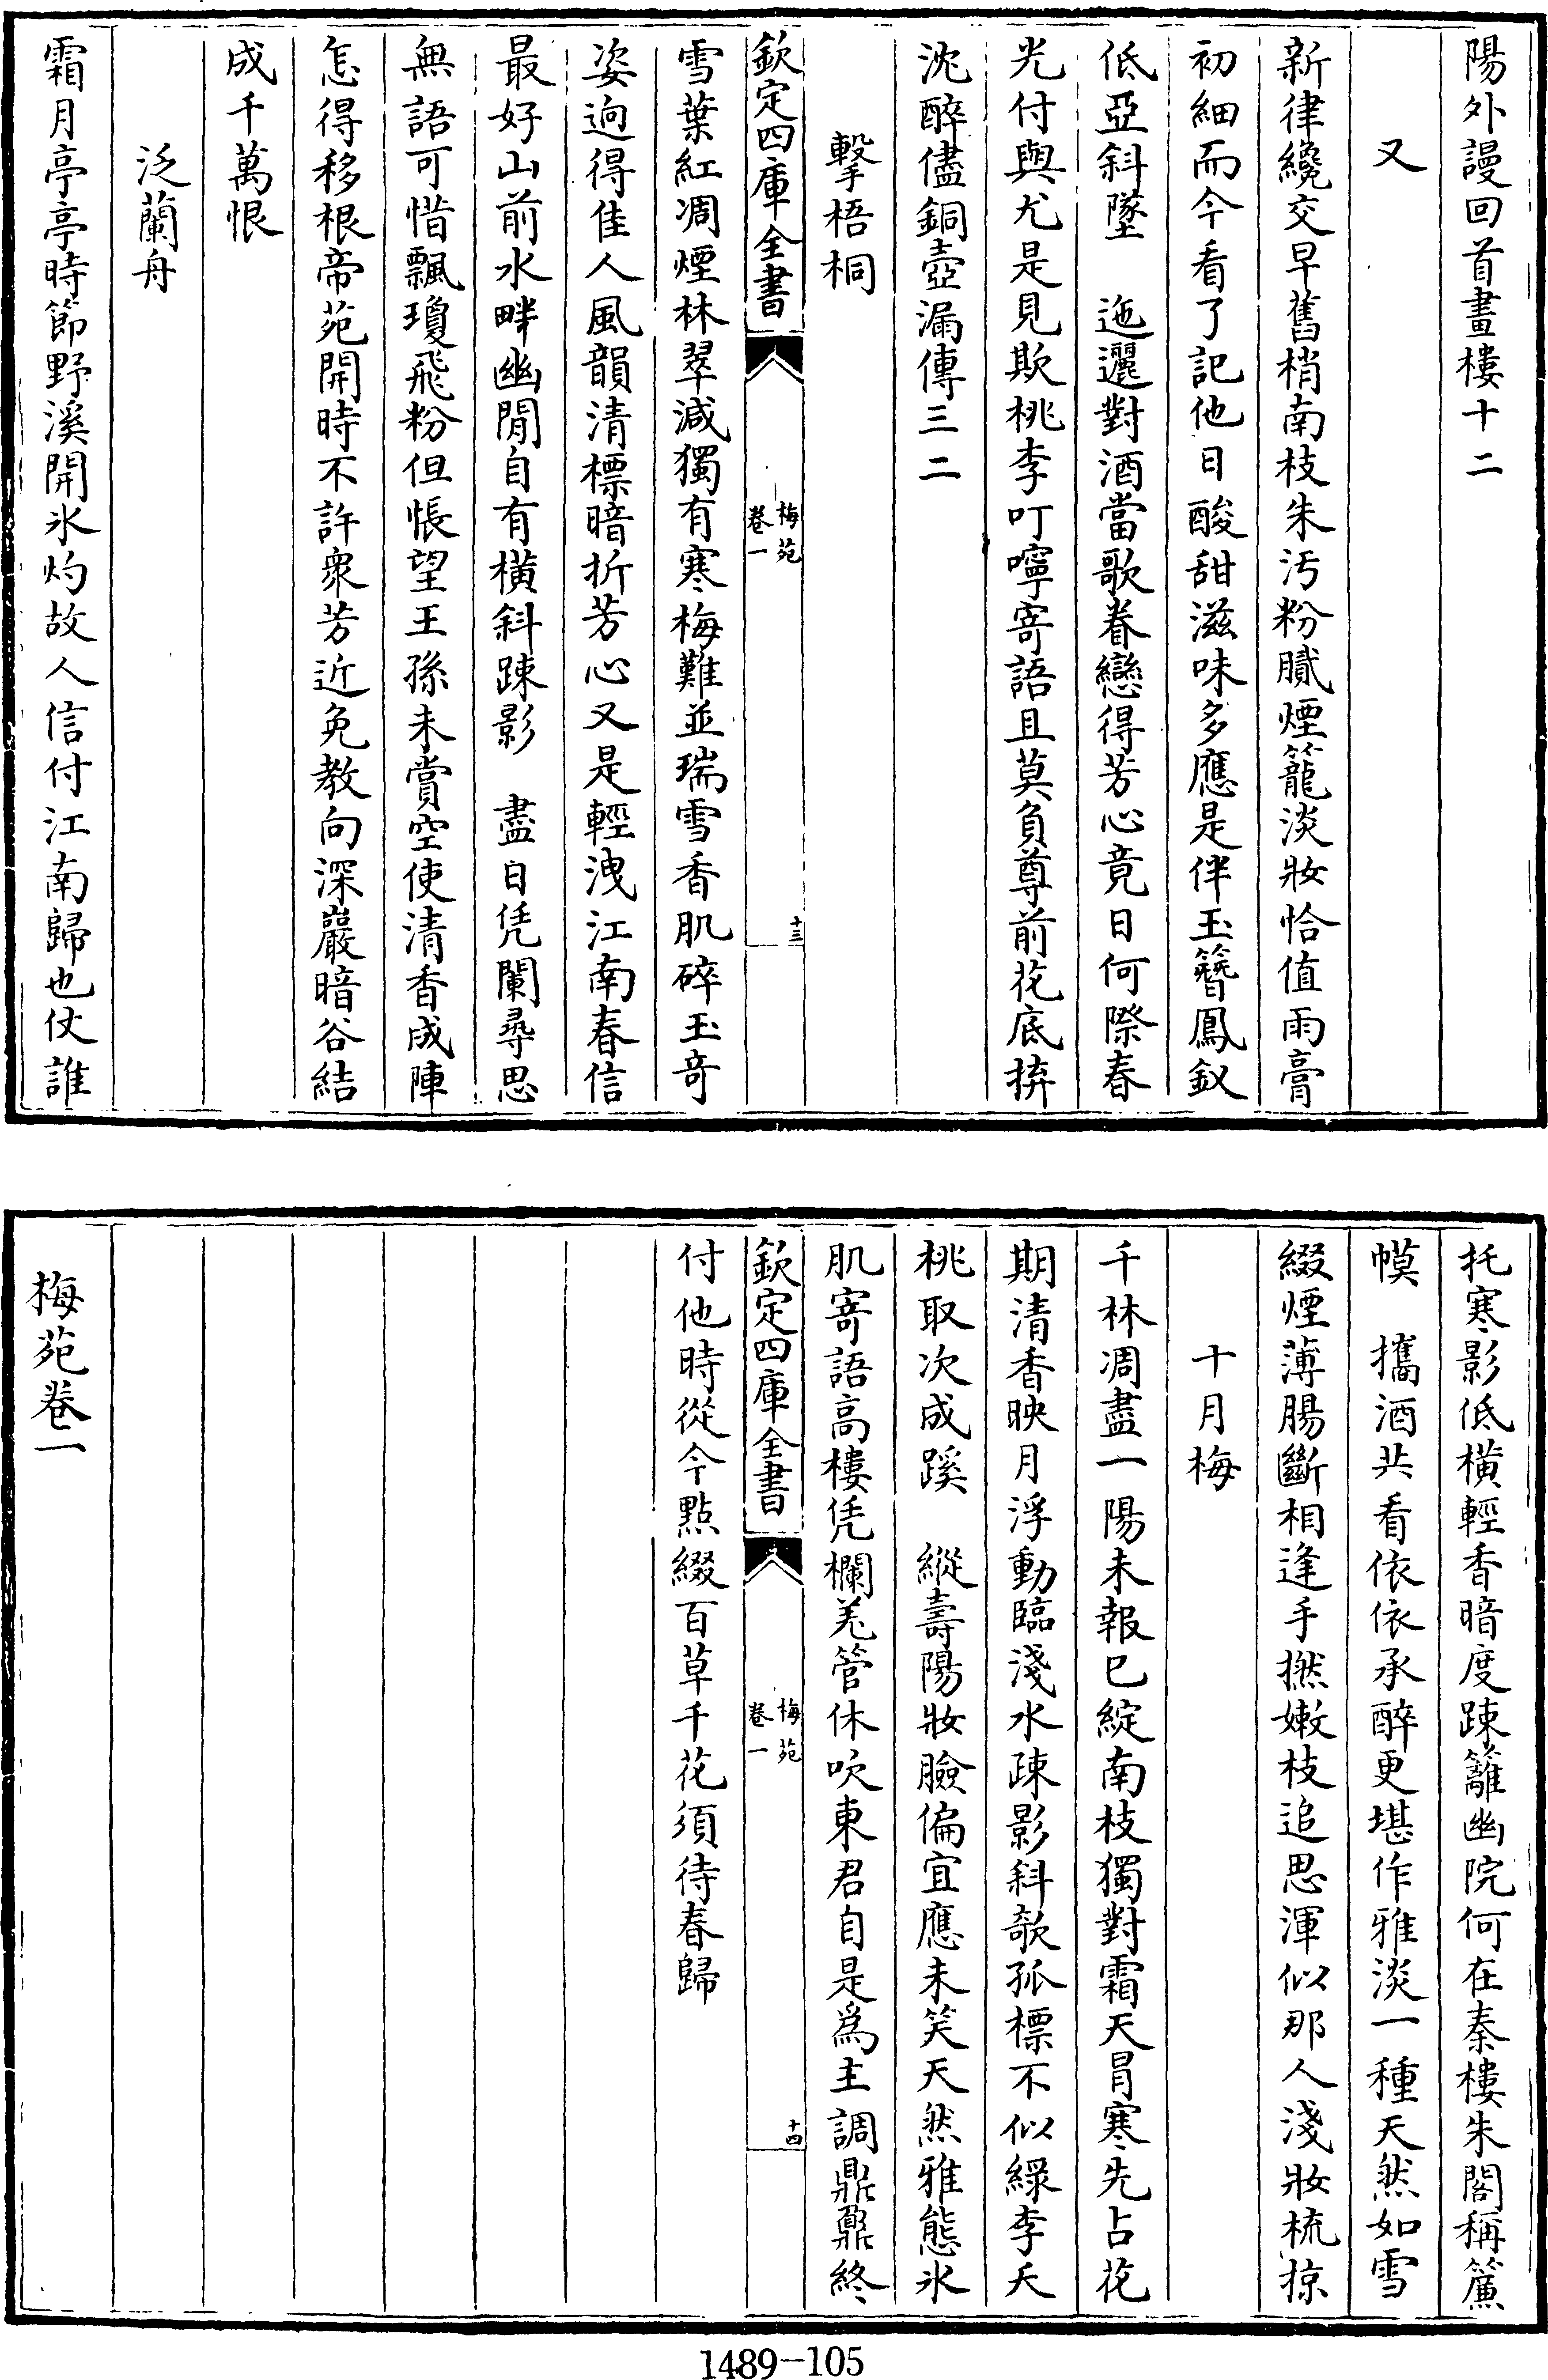 陽外謾回首畫樓十二
又
新律纔交早舊梢南枝朱汚粉膩煙籠淡妝恰值雨膏
初細而今看了記他日酸甜滋味多應是伴玉簪鳳釵
低亞斜墜　迤邐對酒當歌眷戀得芳心竟日何際春
光付與尤是見欺桃李叮嚀寄語且莫負尊前花底拚
沈醉儘銅壺漏傳三二
擊梧桐
欽定四庫全書
梅苑
卷一
十三
雪葉紅凋煙林翠減獨有寒梅難並瑞雪香肌碎玉奇
姿迥得佳人風韻清標暗折芳心又是輕洩江南春信
最好山前水畔幽閒自有橫斜踈影　盡日凭闌尋思
無語可惜飄瓊飛粉但悵望王孫未賞空使清香成陣
怎得移根帝苑開時不許衆芳近免教向深巖暗谷結
成千萬恨
泛蘭舟
霜月亭亭時節野溪開氷灼故人信付江南歸也仗誰
托寒影低橫輕香暗度踈籬幽院何在秦樓朱閣稱簾
幙　攜酒共看依依承醉更堪作雅淡一種天然如雪
綴煙薄腸斷相逢手撚嫩枝追思渾似那人淺妝梳掠
十月梅
千林凋盡一陽未報已綻南枝獨對霜天冒寒先占花
期清香映月浮動臨淺水疎影斜欹孤標不似綠李夭
桃取次成蹊　縱壽陽妝臉偏宜應未笑天然雅態氷
肌寄語高樓凭欄羌管休吹東君自是爲主調鼎鼐終
欽定四庫全書
梅苑
卷一
十四
付他時從今點綴百草千花須待春歸
梅苑卷一
1489-105